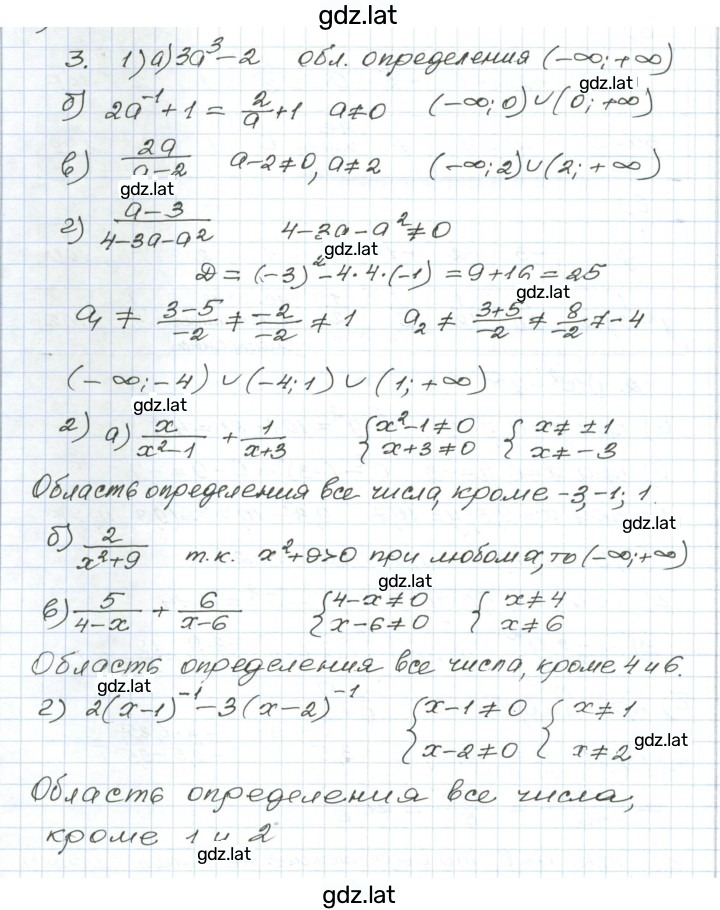 gdz.lat
3. 1) а) 3a³ − 2 обл. определения (−∞; +∞)
gdz.lat
б) 2a⁻¹ + 1 = 2/a + 1 a ≠ 0 (−∞; 0) ∪ (0; +∞)
в) 2a/(a−2) a − 2 ≠ 0, a ≠ 2 (−∞; 2) ∪ (2; +∞)
gdz.lat
г) (a−3)/(4−3a−a²) 4 − 3a − a² ≠ 0
gdz.lat
D = (−3)² − 4·4·(−1) = 9 + 16 = 25
gdz.lat
a₁ ≠ (3−5)/−2 ≠ −2/−2 ≠ 1 a₂ ≠ (3+5)/−2 ≠ 8/−2 ≠ −4
(−∞; −4) ∪ (−4; 1) ∪ (1; +∞)
gdz.lat
2) а) x/(x²−1) + 1/(x+3) { x²−1 ≠ 0 { x ≠ ±1
x+3 ≠ 0 x ≠ −3
Область определения все числа, кроме −3, −1; 1.
gdz.lat
б) 2/(x²+9) т.к. x²+9>0 при любом x, то (−∞; +∞)
gdz.lat
в) 5/(4−x) + 6/(x−6) { 4−x ≠ 0 { x ≠ 4
x−6 ≠ 0 x ≠ 6
Область определения все числа, кроме 4 и 6.
gdz.lat
г) 2(x−1)⁻¹ − 3(x−2)⁻¹ { x−1 ≠ 0 { x ≠ 1
x−2 ≠ 0 x ≠ 2
gdz.lat
Область определения все числа,
кроме 1 и 2
gdz.lat
gdz.lat